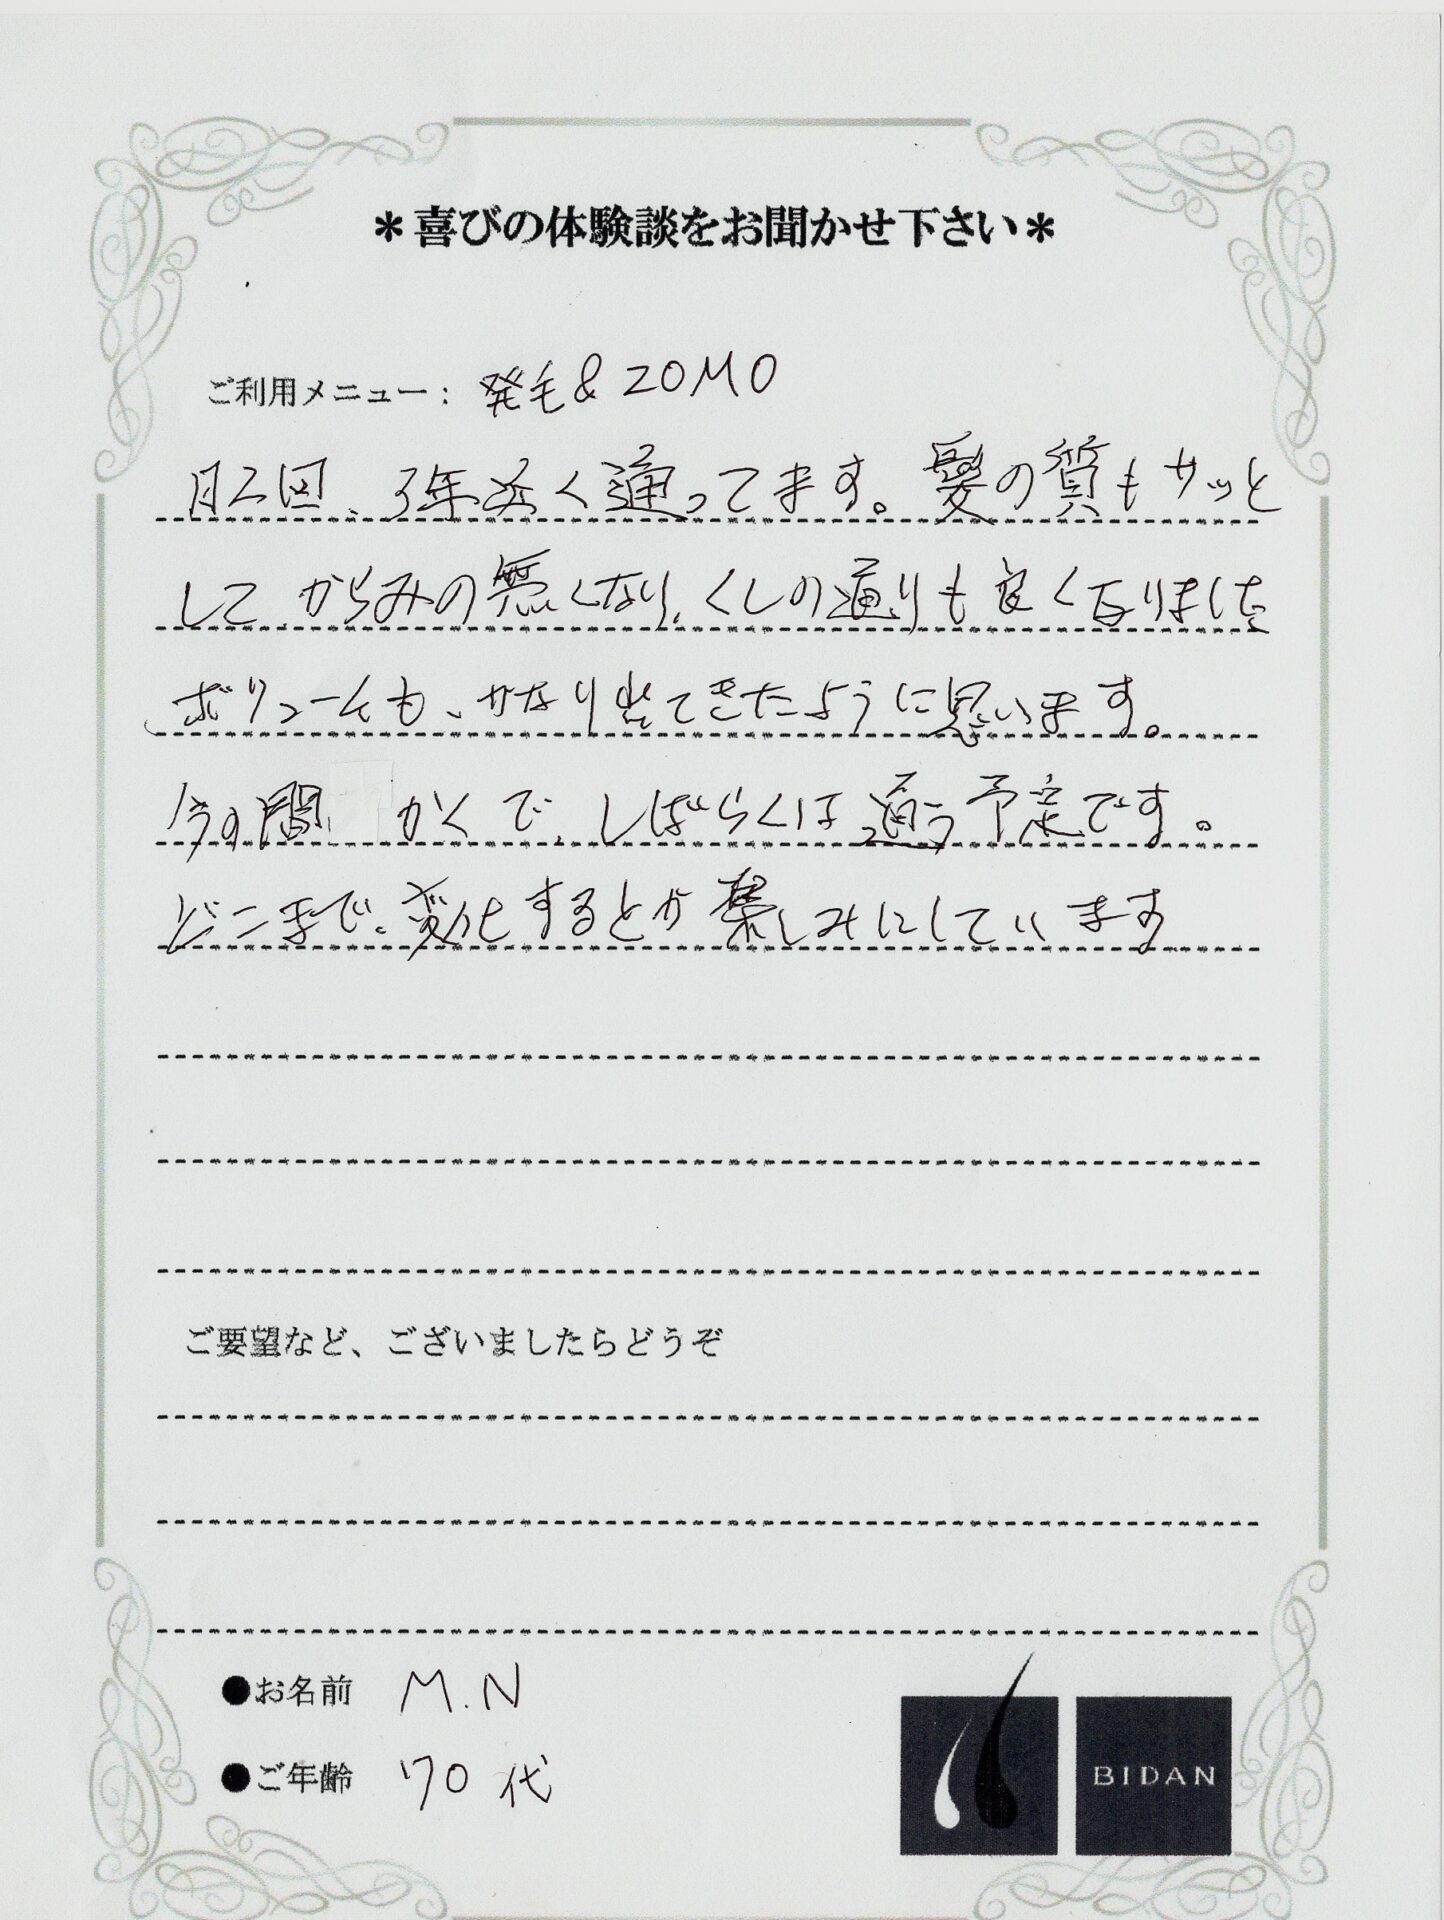 ＊喜びの体験談をお聞かせ下さい＊
ご利用メニュー：発毛&ZOMO
月2回、3年近く通ってます。髪の質もサッと
して、からみの無くなり、くしの通りも良くなりました
ボリュームも、かなり出てきたように思います。
今の間かくで、しばらくは通う予定です。
どこまで、変化するとか楽しみにしています
ご要望など、ございましたらどうぞ
●お名前 M.N
●ご年齢 70代
BIDAN